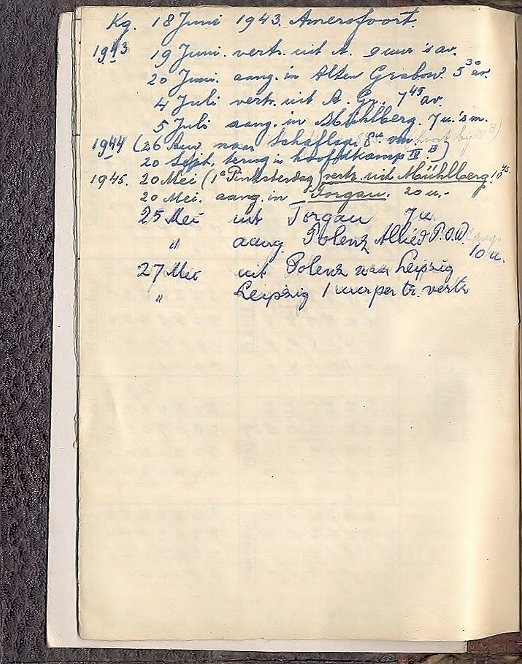 Kg. 18 Juni 1943. Amersfoort.
1943 19 Juni. vertr. uit A. 9 uur 's av.
20 Juni. aang. in Alten Grabow. 5³⁰ av.
4 Juli vertr. uit A. Gr. 7⁴⁵ av.
5 Juli aang. in Mühlberg. 7 u. 's m.
1944 (26 naar
20 Sept. terug in hoofdkamp IV B)
1945. 20 Mei (1e Pinksterdag) vertr. uit Mühlberg. 10⁴⁵
20 Mei. aang. in Torgau. 20 u.-
25 Mei uit Torgau 7 u.
" aang Polenz Allied P.O.W. Camp
10 u.
27 Mei uit Polenz naar Leipzig
" Leipzig 1 uur per tr. vertr